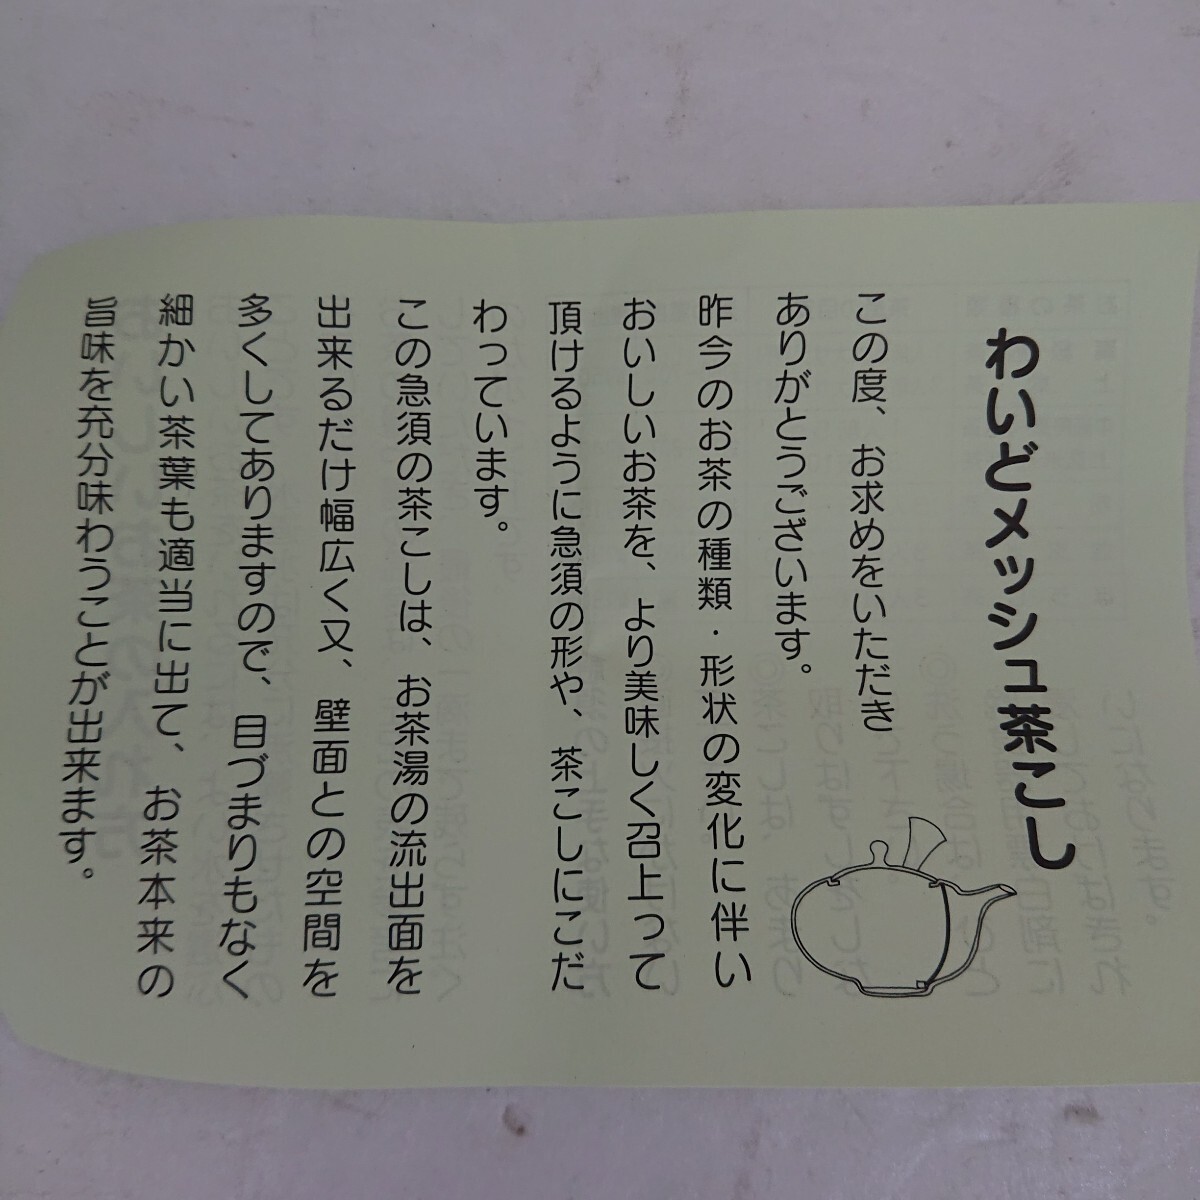 わいどメッシュ茶こし
この度、お求めをいただき
ありがとうございます。
昨今のお茶の種類・形状の変化に伴い
おいしいお茶を、より美味しく召上って
頂けるように急須の形や、茶こしにこだ
わっています。
この急須の茶こしは、お茶湯の流出面を
出来るだけ幅広く又、壁面との空間を
多くしてありますので、目づまりもなく
細かい茶葉も適当に出て、お茶本来の
旨味を充分味わうことが出来ます。